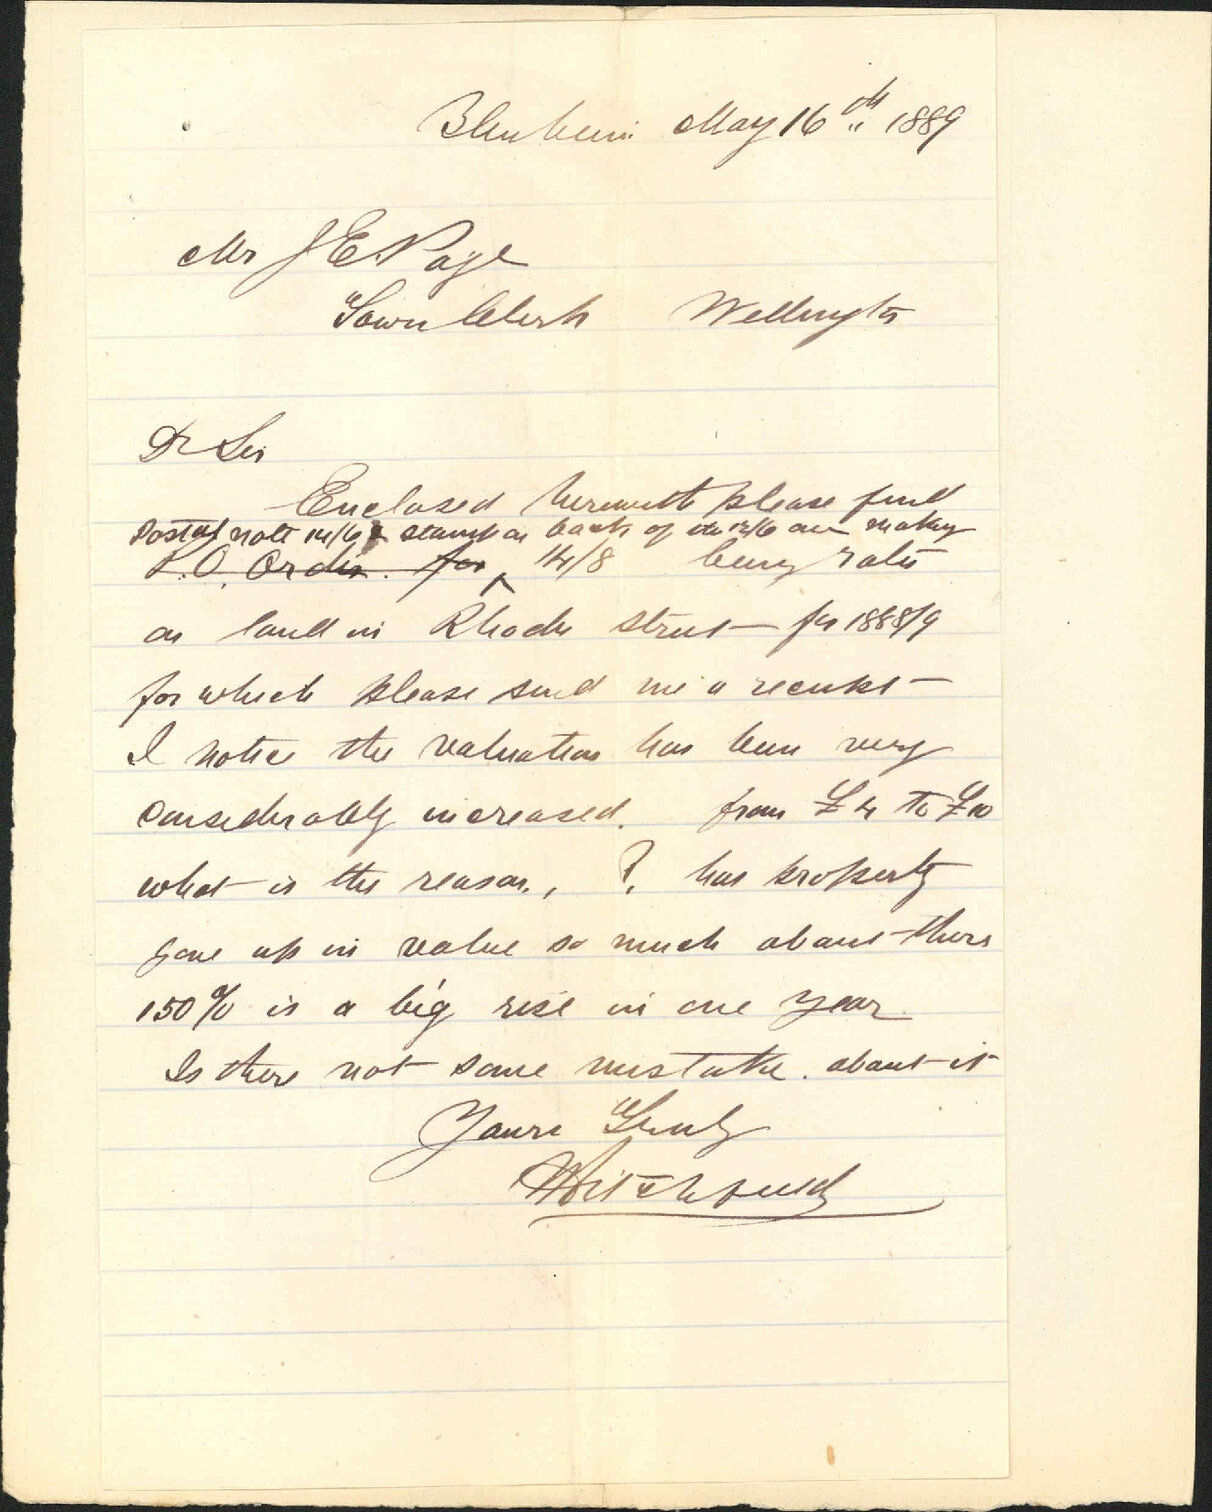 Blenheim May 16th 1889
Mr J E Page
Town Clerk Wellington
Dr Sir
Enclosed herewith please find
Postal note 14/6 & stamp on back of the 12/6 one making
P.O. Order for 14/8 being rates
on land in Rhodes Street for 1888/9
for which please send me a receipt
I notice the valuation has been very
considerably increased. from £4 to £10
what is the reason, ?, has property
gone up in value so much about there
150% is a big rise in one year.
Is there not some mistake. about it
Yours Truly